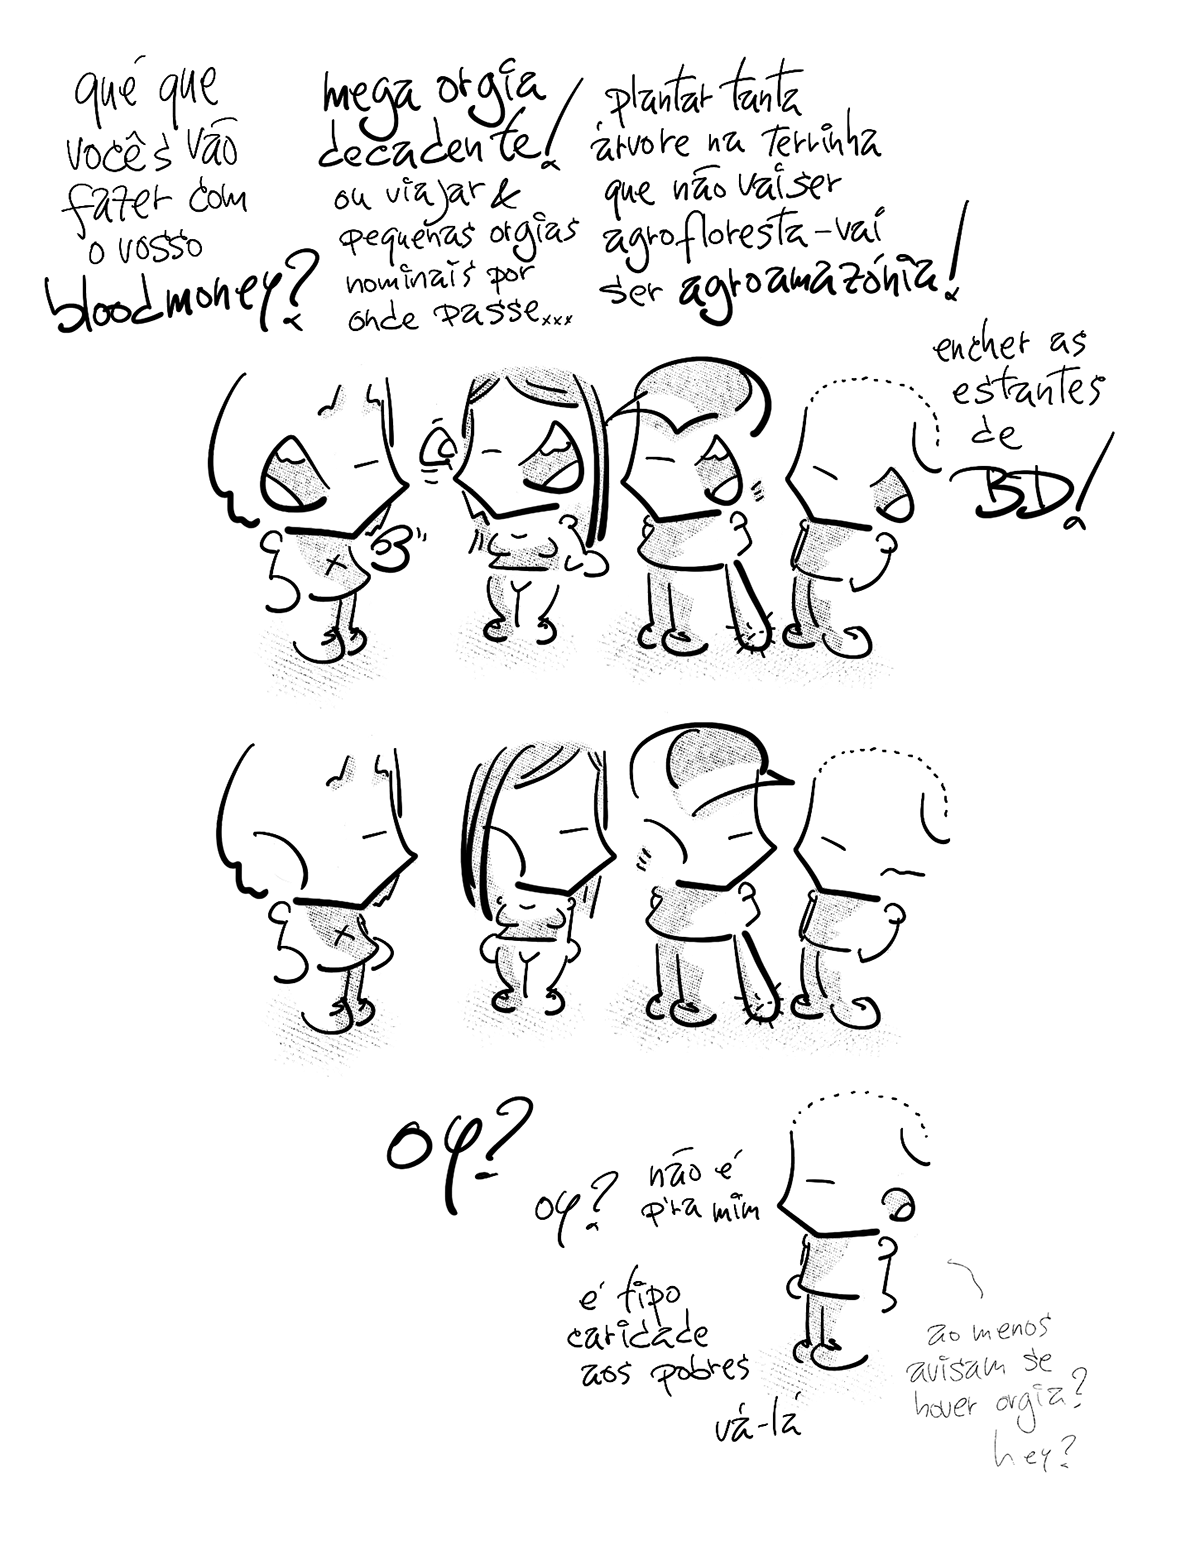 qué que
vocês vão
fazer com
o vosso
bloodmoney?
mega orgia
decadente!
ou viajar &
pequenas orgias
nominais por
onde passe...
plantar tanta
árvore na terrinha
que não vai ser
agrofloresta-vai
ser agroamazónia!
encher as
estantes
de
BD!
oy?
oy?
não é
p'ra mim
é tipo
caridade
aos pobres
vá-lá
ao menos
avisam se
houver orgia?
hey?